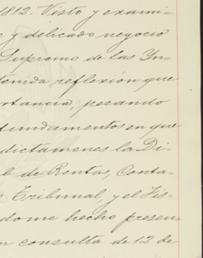 1812. Visto y exami-
y delicado negocio
Supremo de las Yn-
tenida reflexión que
ortancia, pesando
fundamentos en que
dictamenes la Di-
de Rentas, Conta-
Tribunal, y el Fis-
dome hecho presen
consulta de 12 de